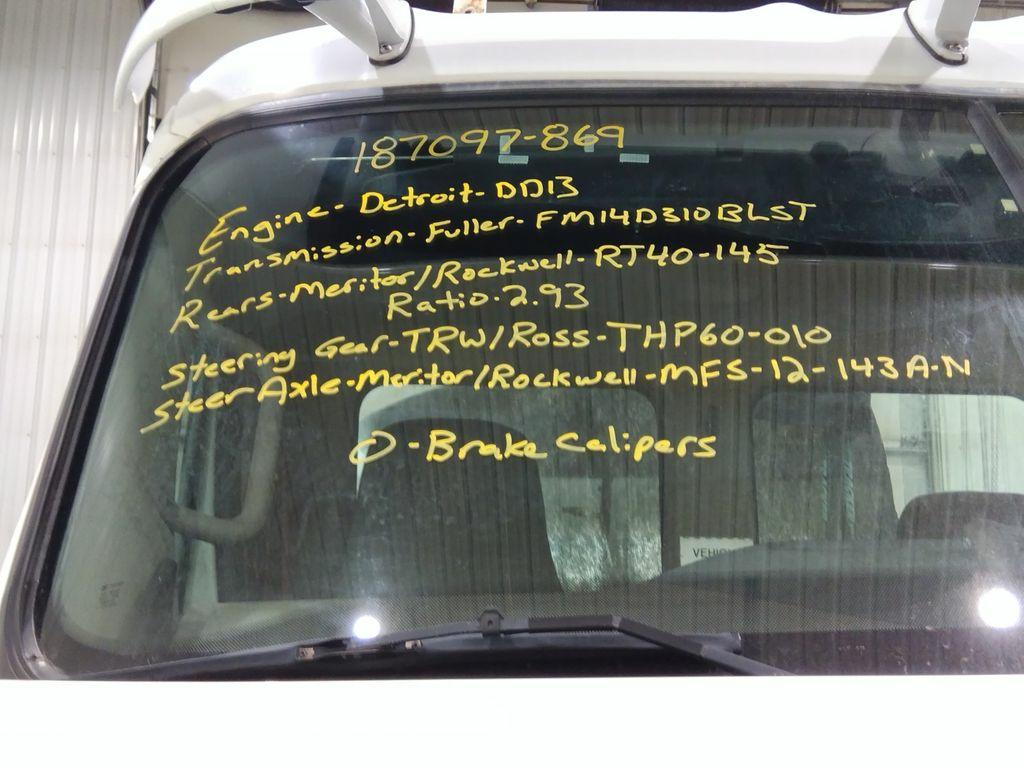 187097-869
Engine- Detroit- DD13
Transmission- Fuller- FM14D310BLST
Rears-Meritor/Rockwell- RT40-145
Ratio-2.93
Steering Gear-TRW/Ross-THP60-010
Steer Axle-Meritor/Rockwell-MFS-12-143A-N
0-Brake Calipers